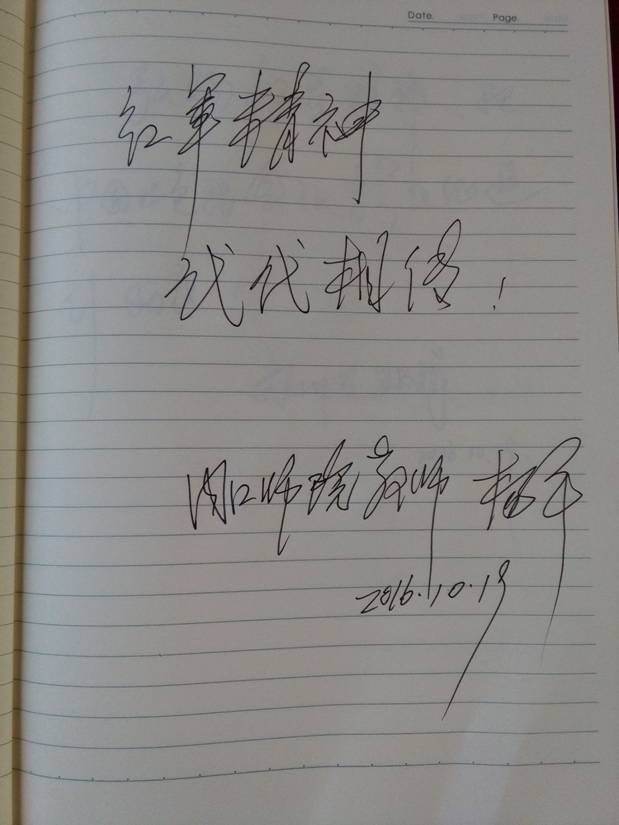 Date. Page
红军精神
代代相传！
周口师院教师 杨
2016.10.19